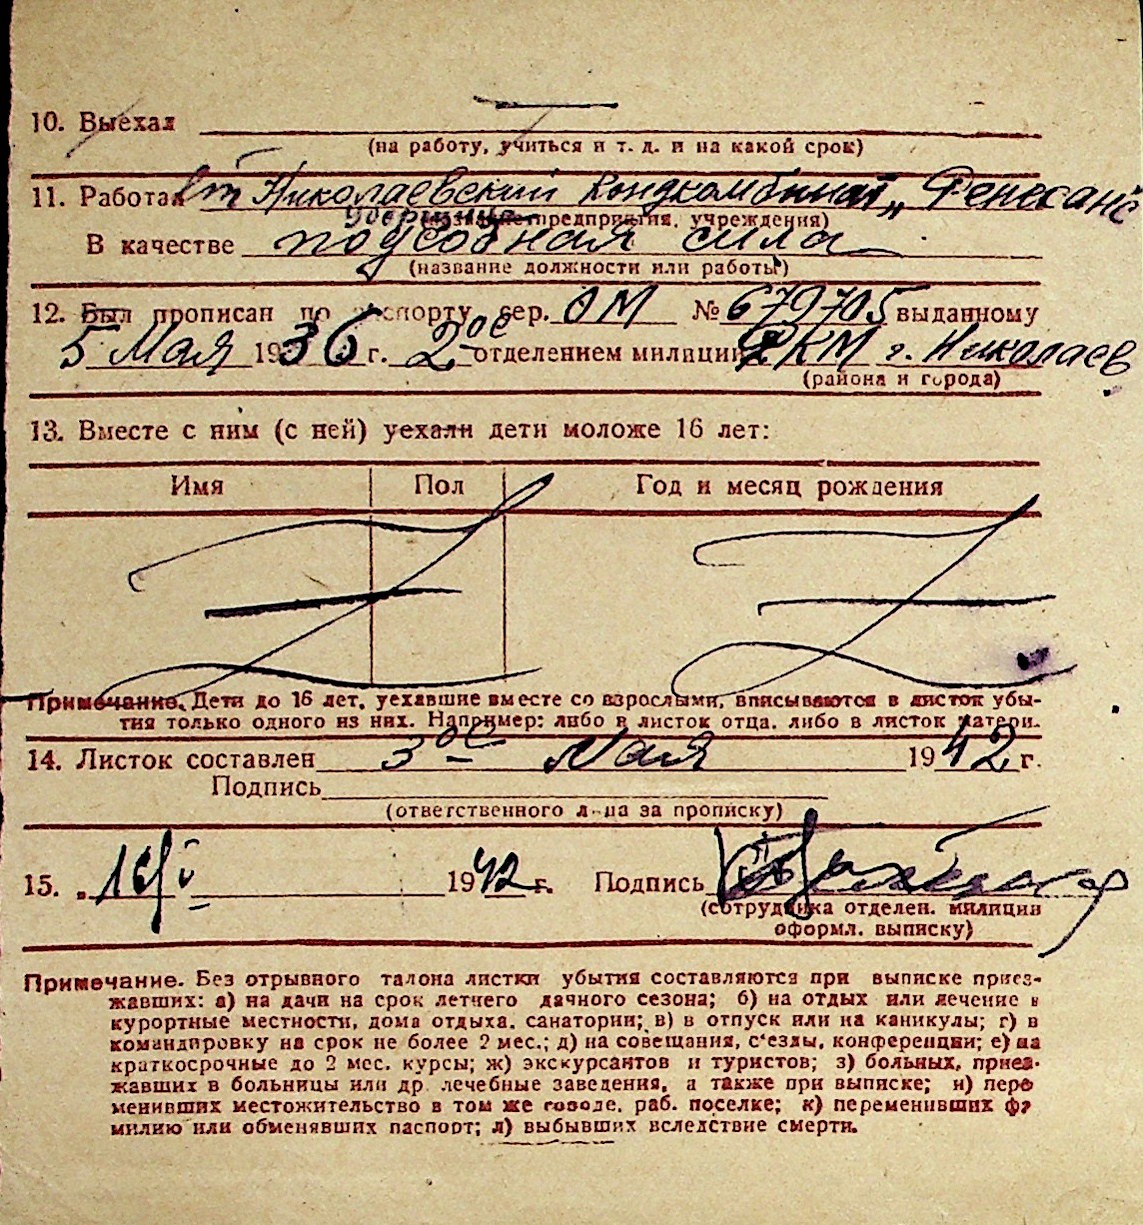 10. Выехал
(на работу, учиться и т. д. и на какой срок)
11. Работал Николаевский Кондкомбинат „Ренесанс
предприятия, учреждения)
В качестве подсобная сила
(название должности или работы)
12. Был прописан по паспорту сер. ОМ № 679705 выданному
5 Мая 1936 г. 2-ое отделением милиции РКМ г. Николаев
(района и города)
13. Вместе с ним (с ней) уехали дети моложе 16 лет:
Имя Пол Год и месяц рождения
Примечание. Дети до 16 лет, уехавшие вместе со взрослыми, вписываются в листок убы-
тия только одного из них. Например: либо в листок отца, либо в листок матери.
14. Листок составлен 3ое Мая 1942 г.
Подпись
(ответственного лица за прописку)
15. „ 1942 г. Подпись
(сотрудника отделен. милиции
оформл. выписку)
Примечание. Без отрывного талона листки убытия составляются при выписке приез-
жавших: а) на дачи на срок летнего дачного сезона; б) на отдых или лечение в
курортные местности, дома отдыха, санатории; в) в отпуск или на каникулы; г) в
командировку на срок не более 2 мес.; д) на совещания, с'езды, конференции; е) на
краткосрочные до 2 мес. курсы; ж) экскурсантов и туристов; з) больных, приез-
жавших в больницы или др. лечебные заведения, а также при выписке; и) пере
менивших местожительство в том же городе, раб. поселке; к) переменивших фа
милию или обменявших паспорт; л) выбывших вследствие смерти.